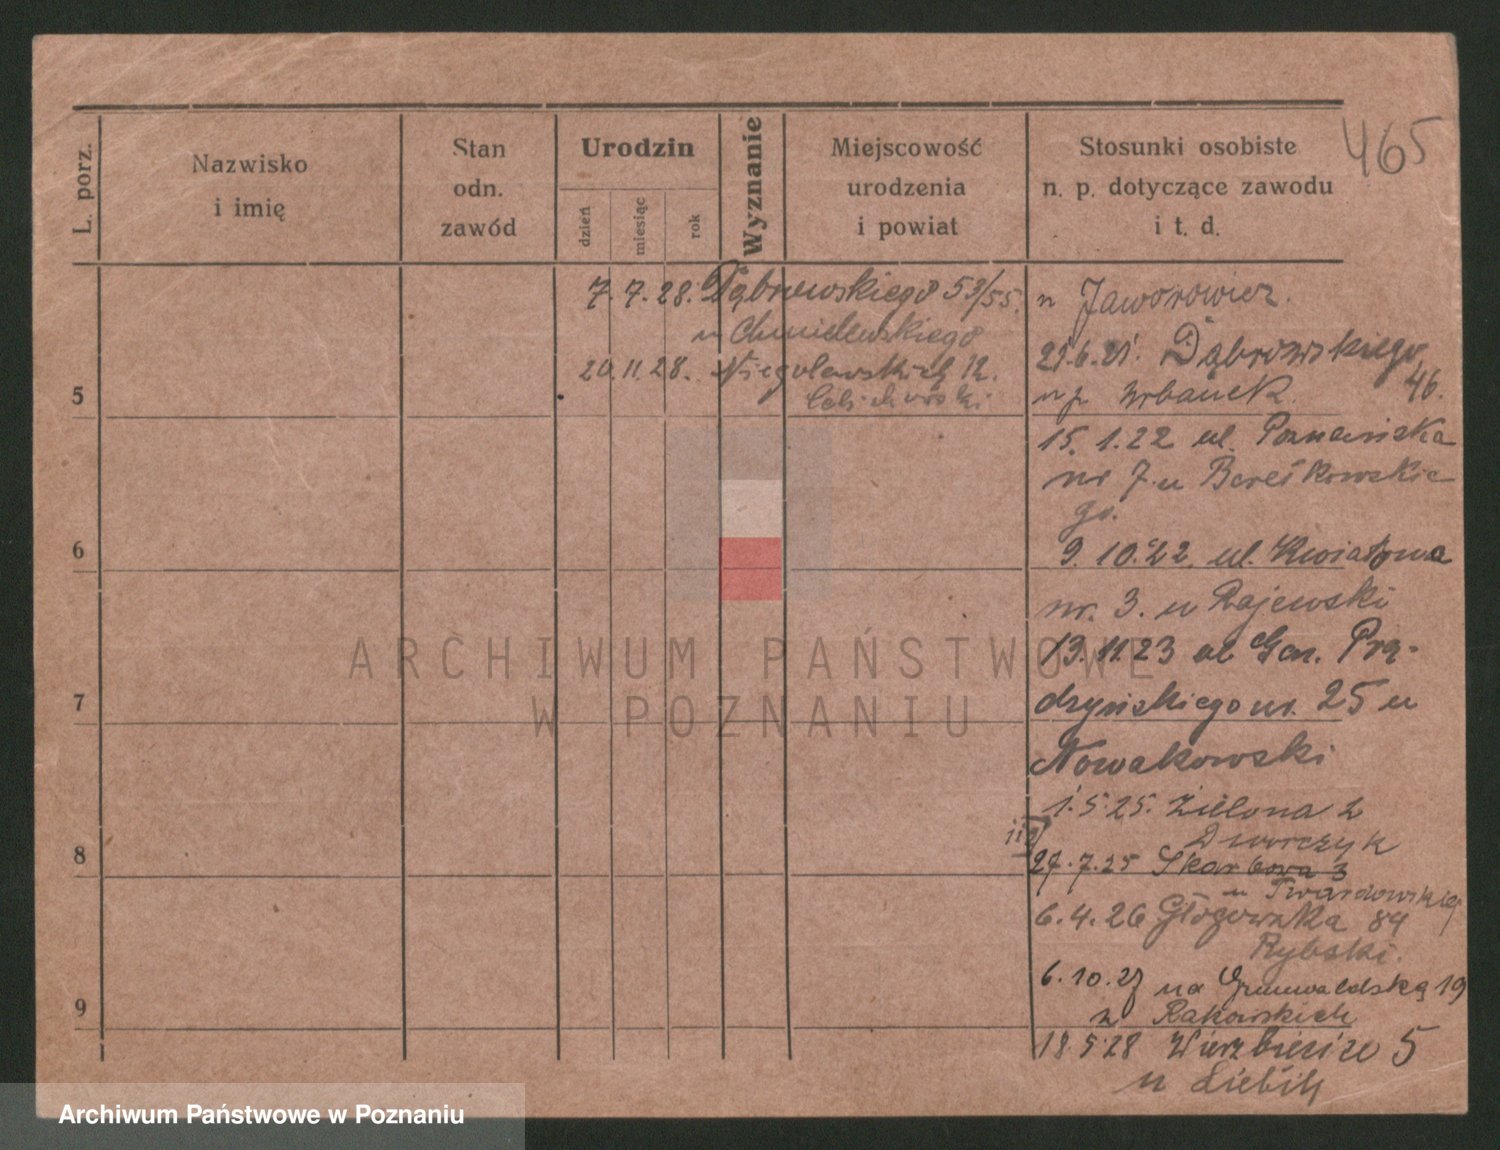 465
L. porz.
Nazwisko
i imię
Stan
odn.
zawód
Urodzin
dzień
miesiąc
rok
Wyznanie
Miejscowość
urodzenia
i powiat
Stosunki osobiste
n. p. dotyczące zawodu
i t. d.
7. 7. 28. Dąbrowskiego 53/55.
u Chmielewskiego
20. 11. 28. Niegolewskich 12.
5
6
7
8
9
u Jaworowicz.
21.6.21. Dąbrowskiego
46.
Urbanek.
15. 1. 22 ul. Poznańska
nr 7. u
go.
9. 10. 22. ul. Kwiatowa
nr. 3. u Rajewski
13. 11. 23 ul Gen. Prą-
dzyńskiego nr. 25 u
Nowakowski
1. 5. 25. Zielona 2
Dworczyk
27. 7. 25 Skarbowa 3
u Twardowskiej
6. 4. 26 Głogowska 84
Rybski.
6. 10. 27 na Grunwaldską 19
z Rakowskich
18 5 28 Wierzbięcice 5
u
ARCHIWUM PAŃSTWOWE
W POZNANIU
Archiwum Państwowe w Poznaniu